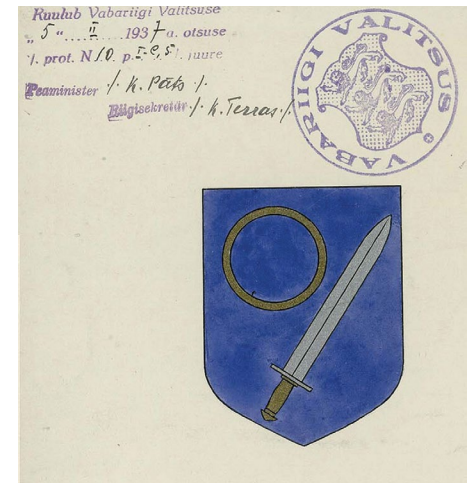 Kuulub Vabariigi Valitsuse
„ 5 “ II 1937 a. otsuse
prot. N 10. p. juure
Peaminister /. K. Päts /.
Riigisekretär /. K. Terras /.
VABARIIGI VALITSUS